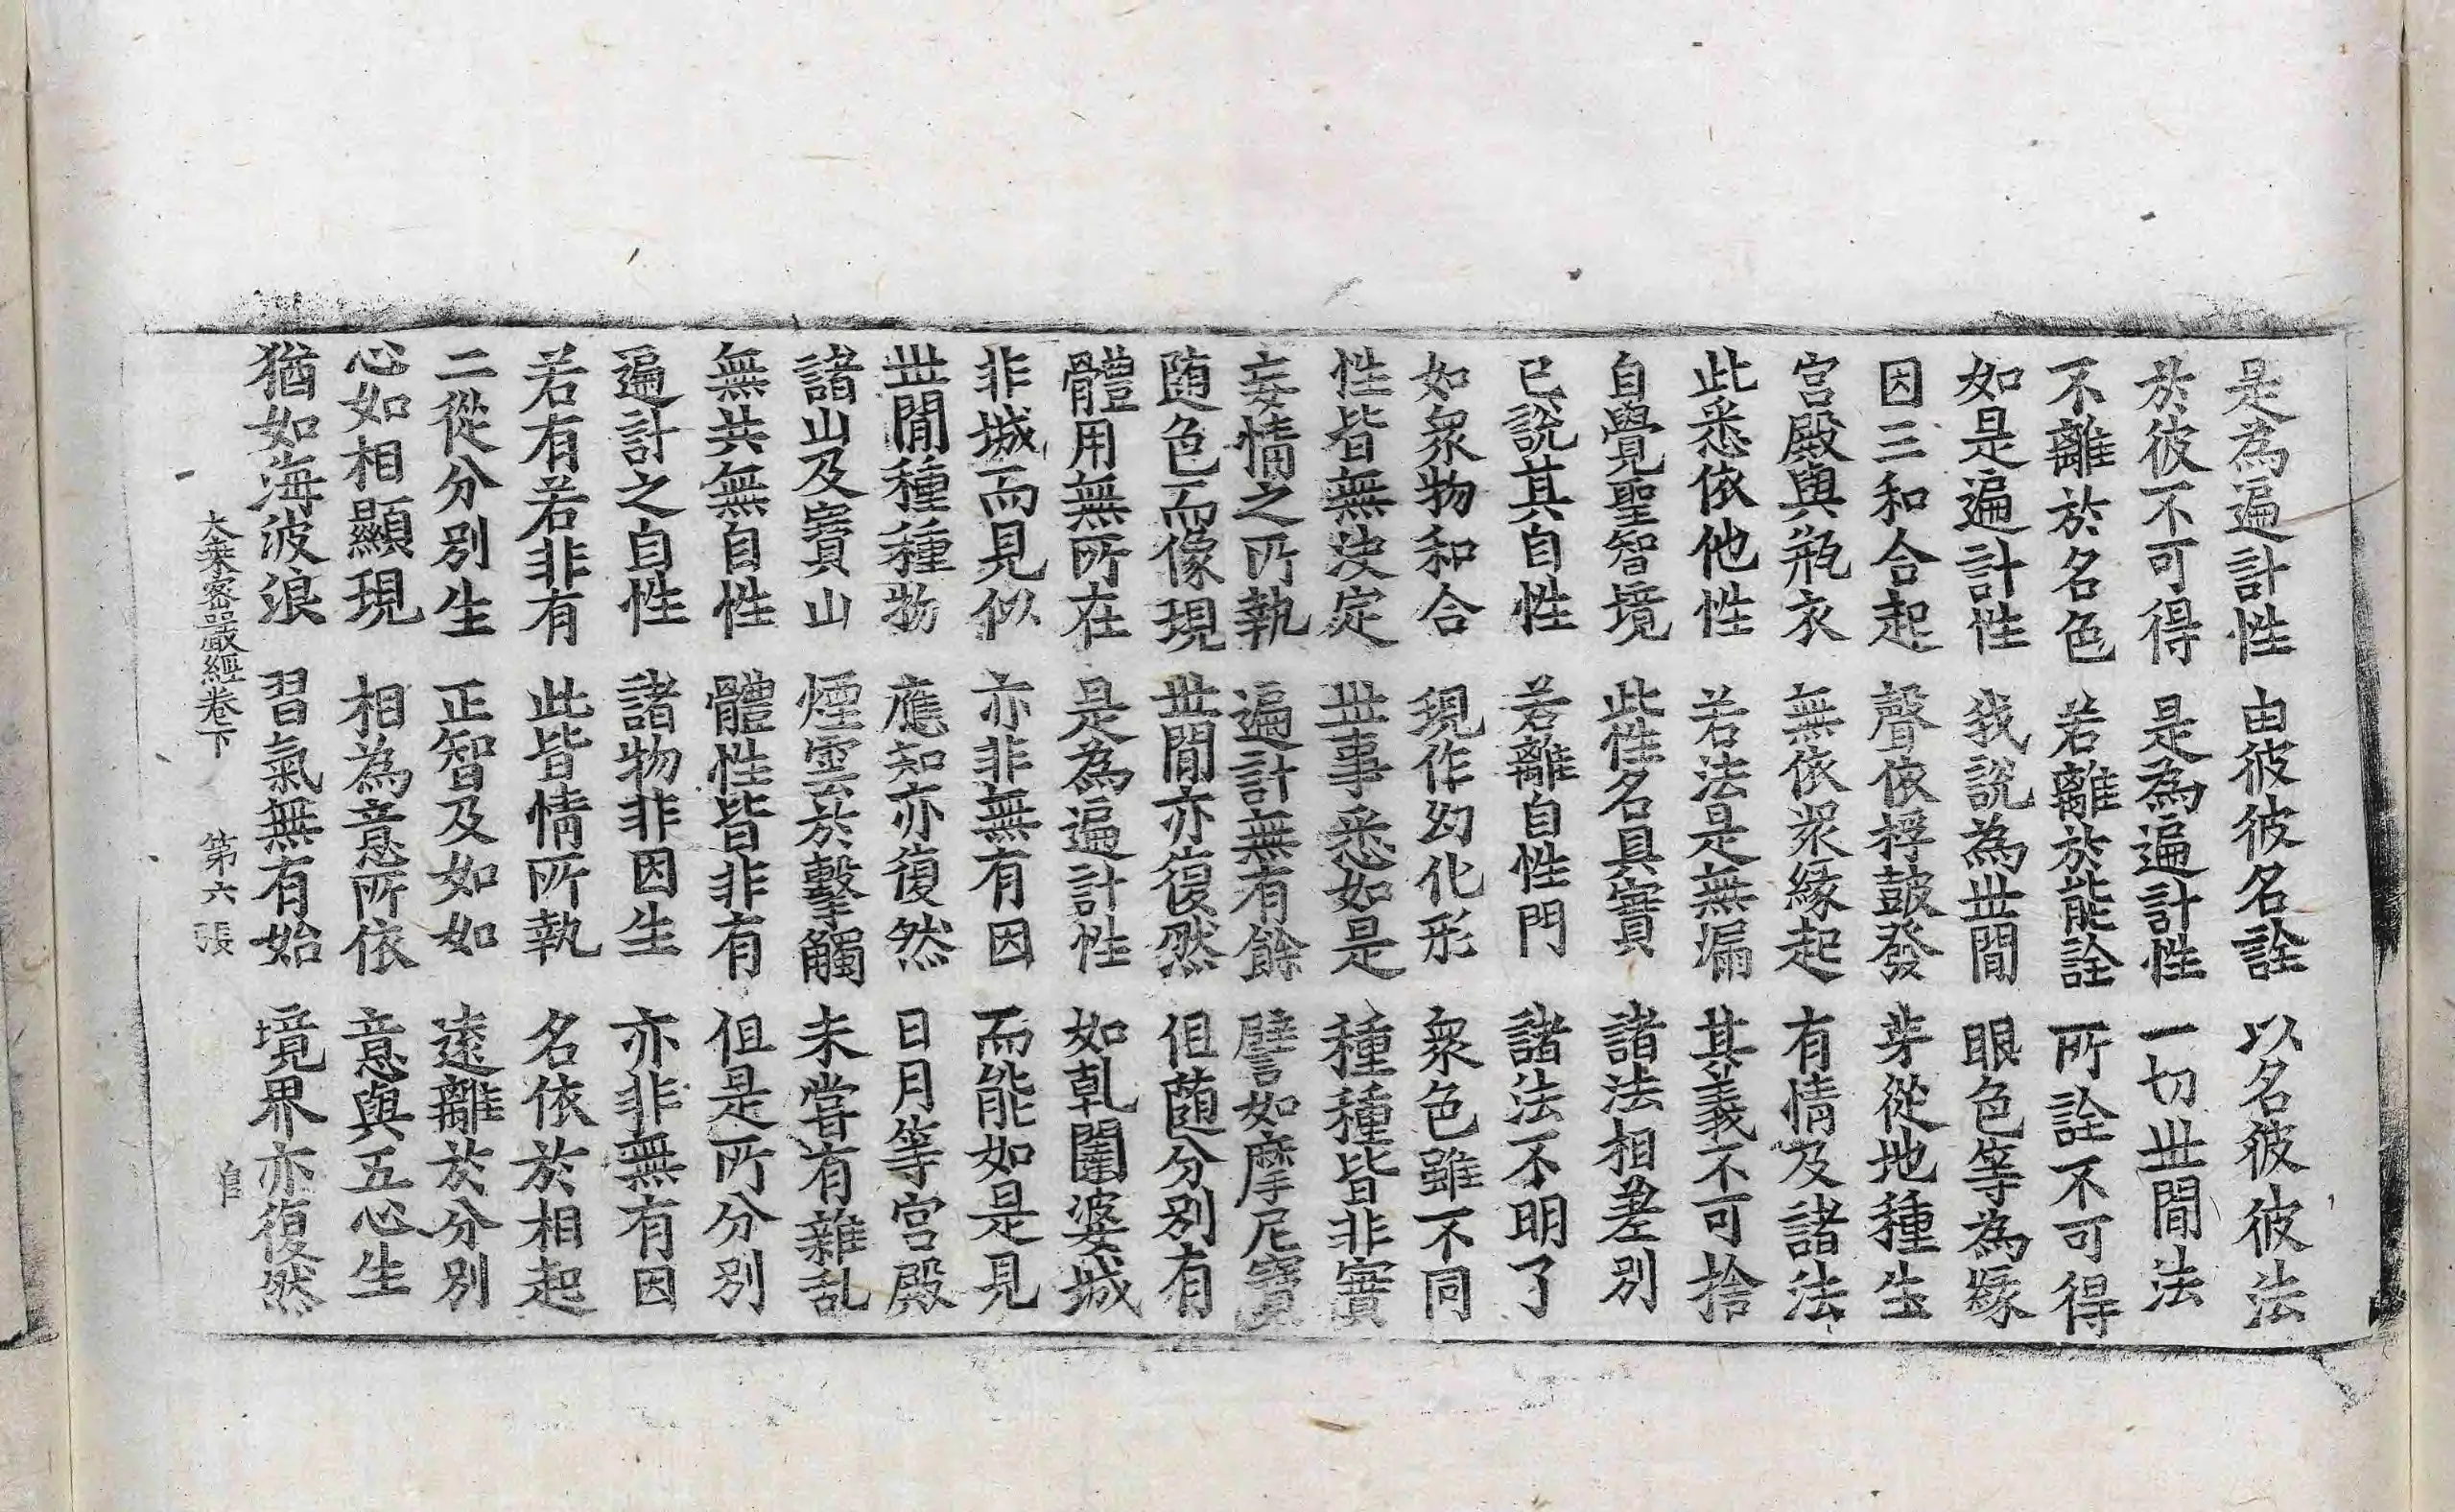 是為遍計性　由彼彼名詮　以名彼彼法
於彼不可得　是為遍計性　一切世間法
不離於名色　若離於能詮　所詮不可得
如是遍計性　我說為世間　眼色等為緣
因三和合起　聲依桴鼓發　芽從地種生
宮殿與瓶衣　無依衆緣起　有情及諸法
此悉依他性　若法是無漏　其義不可捨
自覺聖智境　此性名具實　諸法相差別
已說其自性　若離自性門　諸法不明了
如衆物和合　現作幻化形　衆色雖不同
性皆無決定　世事悉如是　種種皆非實
妄情之所執　遍計無有餘　譬如摩尼寶
随色而像現　世間亦復然　但随分別有
體用無所在　是為遍計性　如乹闥婆城
非城而見似　亦非無有因　而能如是見
世間種種物　應知亦復然　日月等宮殿
諸山及寶山　煙雲於擊觸　未嘗有雜乱
無共無自性　體性皆非有　但是所分別
遍計之自性　諸物非因生　亦非無有因
若有若非有　此皆情所執　名依於相起
二從分別生　正智及如如　遠離於分別
心如相顯現　相為意所依　意與五心生
猶如海波浪　習氣無有始　境界亦復然
大乘密嚴經卷下　第六張